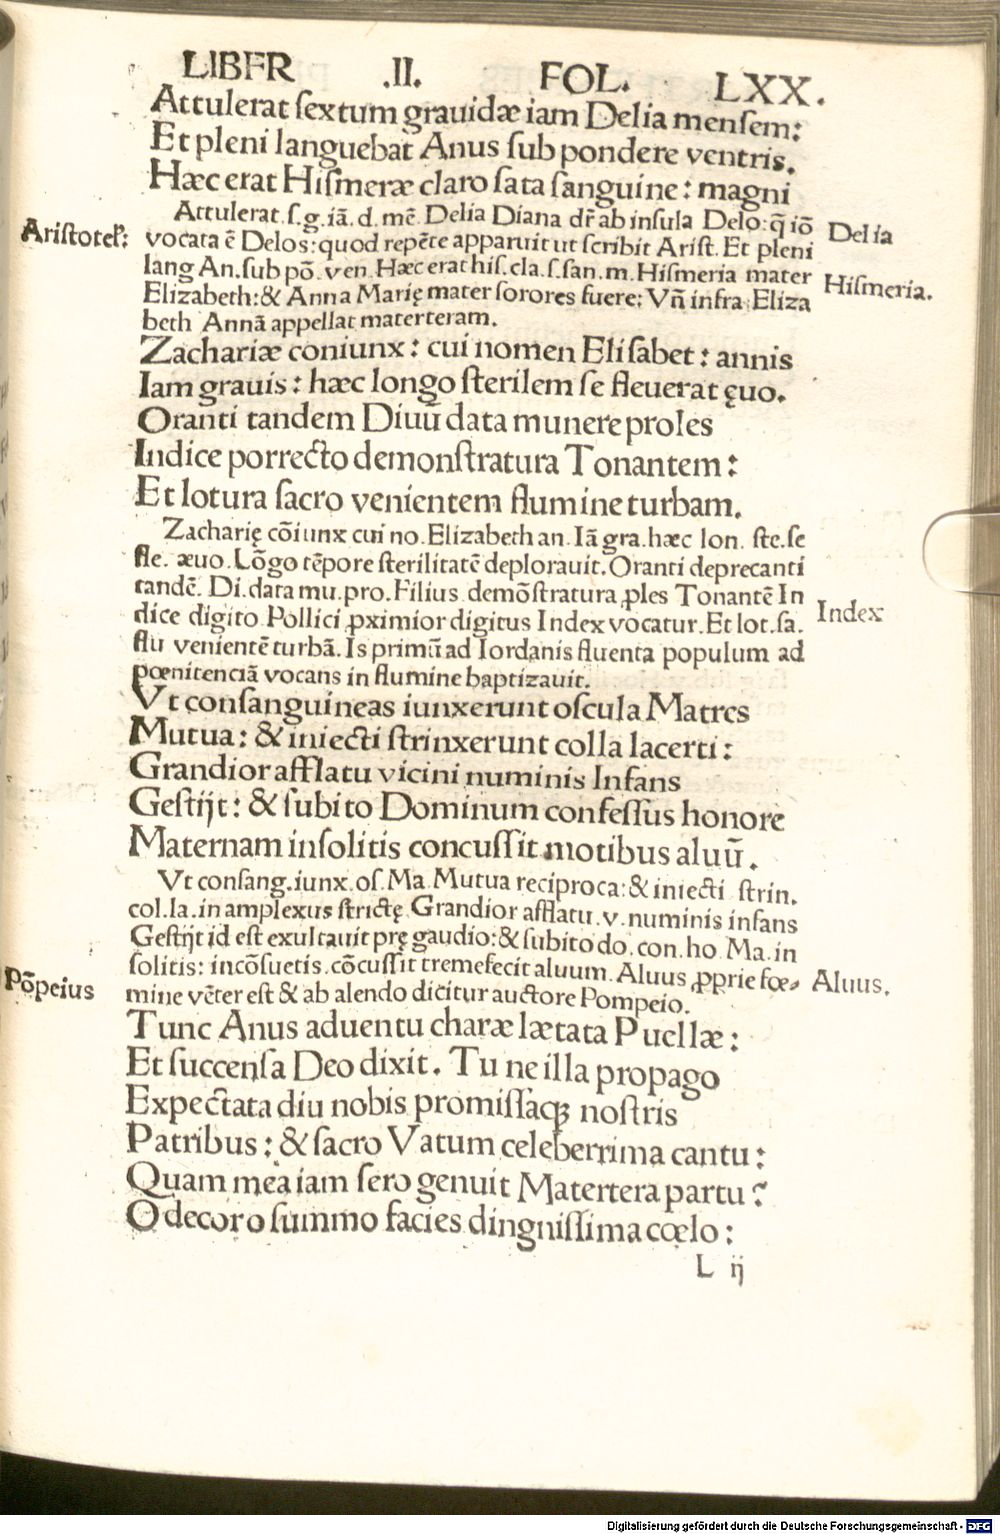 LIBER .II. FOL. LXX.
Attulerat ſextum grauidæ iam Delia menſem:
Et pleni languebat Anus ſub pondere ventris.
Hæc erat Hiſmeræ claro ſata ſanguine: magni
Attulerat.ſ.g.iã.d.mẽ.Delia Diana dr̃ ab inſula Delo:q̃ iõ
Delia
Ariſtoteľ:
vocata ẽ Delos:quod repẽte apparuit ut ſcribit Ariſt.Et pleni
lang An.ſub põ.ven.Hæc erat hiſ.cla.ſ.ſan.m.Hiſmeria mater
Hiſmeria.
Elizabeth:& Anna Marię mater ſorores fuere: Vñ infra Eliza
beth Annã appellat materteram.
Zachariæ coniunx: cui nomen Eliſabet: annis
Iam grauis: hæc longo ſterilem ſe fleuerat ęuo.
Oranti tandem Diuũ data munere proles
Indice porrecto demonſtratura Tonantem:
Et lotura ſacro venientem flumine turbam.
Zacharię cõiunx cui no.Elizabeth an.Iã gra.hæc lon. ſte.ſe
fle. æuo.Lõgo tẽpore ſterilitatẽ deplorauit.Oranti deprecanti
tandẽ. Di.data mu.pro.Filius demõſtratura ꝓles Tonantẽ In
dice digito Pollici ꝓximior digitus Index vocatur.Et lot.ſa.
Index
flu venientẽ turbã.Is primũ ad Iordanis fluenta populum ad
pœnitenciã vocans in flumine baptizauit.
Vt conſanguineas iunxerunt oſcula Matres
Mutua: & iniecti ſtrinxerunt colla lacerti:
Grandior afflatu vicini numinis Infans
Geſtijt: & ſubito Dominum confeſſus honore
Maternam inſolitis concuſſit motibus aluũ.
Vt conſang.iunx.oſ.Ma.Mutua reciproca:& iniecti ſtrin.
col.la.in amplexus ſtrictę.Grandior afflatu.v.numinis infans
Geſtijt id eſt exultauit prę gaudio:& ſubito do.con.ho.Ma.in
ſolitis: incõſuetis.cõcuſſit tremefecit aluum.Aluus ꝓprie fœ-
Aluus.
Põpeius
mine vẽter eſt & ab alendo dicitur auctore Pompeio.
Tunc Anus aduentu charæ lætata Puellæ:
Et ſuccenſa Deo dixit. Tu ne illa propago
Expectata diu nobis promiſſaꝗ noſtris
Patribus: & ſacro Vatum celeberrima cantu:
Quam mea iam ſero genuit Matertera partu?
O decoro ſummo facies dingniſſima cœlo:
L ij
Digitalisierung gefördert durch die Deutsche Forschungsgemeinschaft - DFG